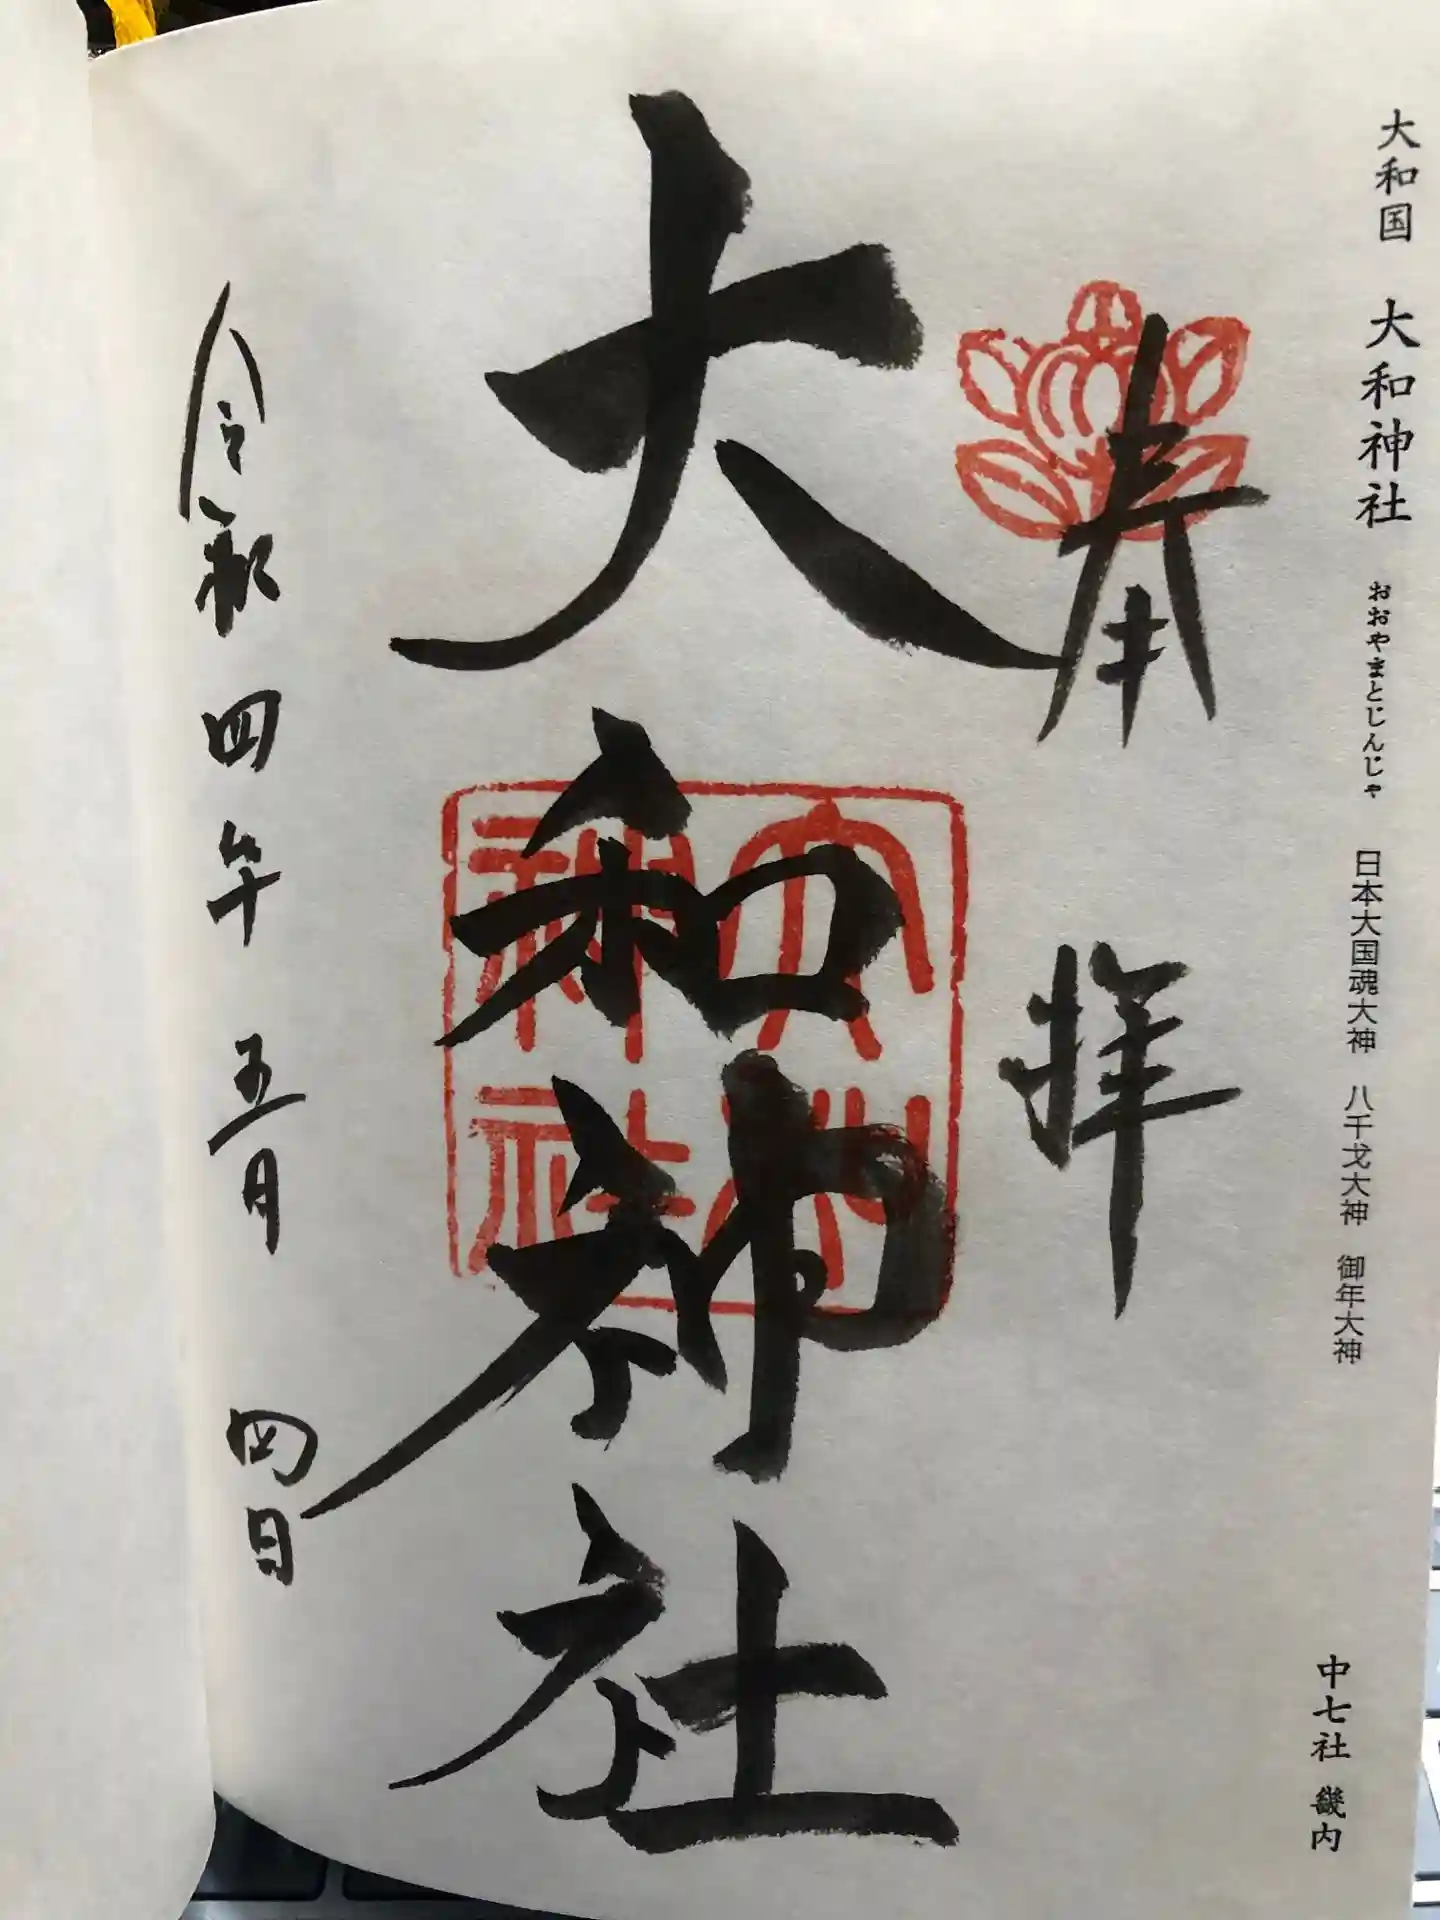 大和国 大和神社 おおやまとじんじゃ 日本大国魂大神 八千戈大神 御年大神
中七社 畿内
奉拝
大和神社
大和神社
令和四年 五月 四日